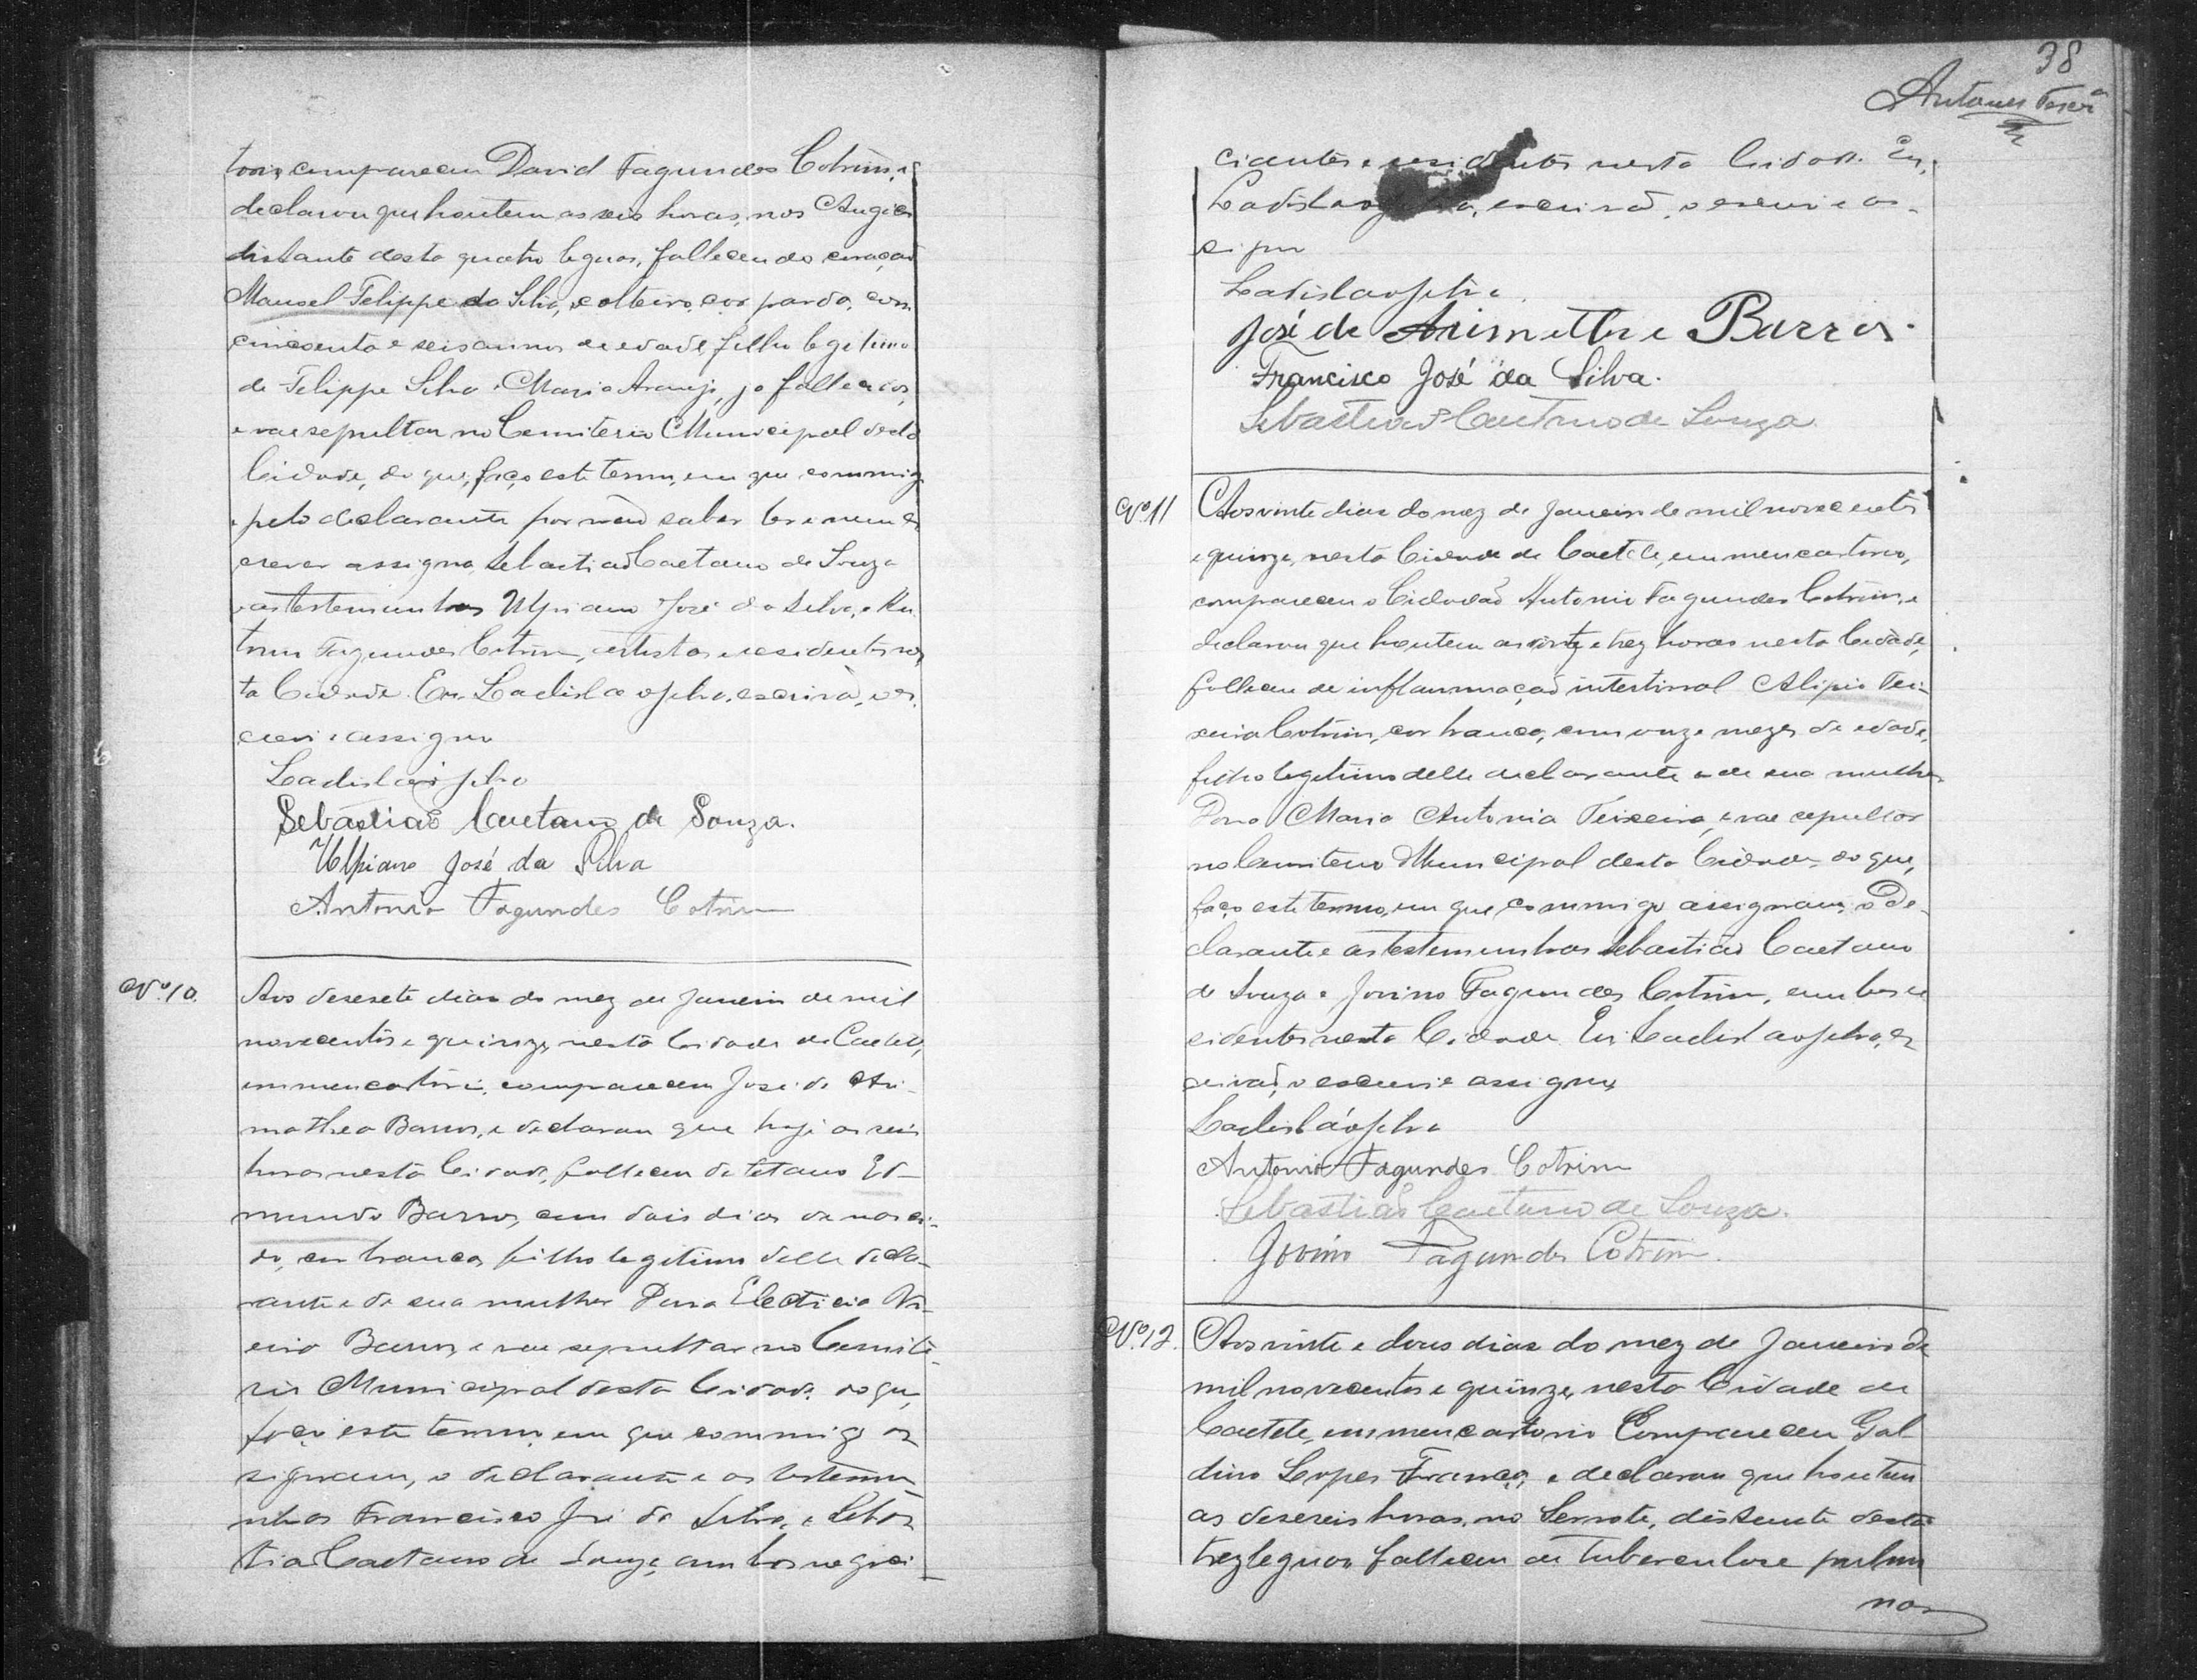 torio, compareceu David Fagundes Cotrim, e
declarou que hontem as seis horas, nos Angicos
distante desta quatro leguas, falleceu do coração
Manoel Felippe da Silva, solteiro, cor parda, com
cincoenta e seis annos de edade, filho legitimo
de Felippe Silva e Maria Araujo, ja fallecidos,
e vae sepultar no Cemiterio Municipal desta
Cidade, do que, faço este termo, em que commigo
e pelo declarante por não saber ler e nem es
crever assigna, Sebastião Caetano de Souza
e as testemunhas Ulpiano José da Silva, e An
tonio Fagundes Cotrim, artistas e residentes nes
ta Cidade. Eu Ladislao Silva, escrivão, o es
crevi e assigno
Ladislao Silva
Sebastião Caetano de Souza.
Ulpiano José da Silva
Antonio Fagundes Cotrim
Nº 10.
Aos desesete dias do mez de Janeiro de mil
novecentos e quinze, nesta Cidade de Caeteté,
em meu cartorio, compareceu José de Ari-
mathea Barros, e declarou que hoje as seis
horas nesta Cidade, falleceu de tetano Ed-
mundo Barros, com dois dias de nasci-
do, cor branca, filho legitimo delle decla-
rante e de sua mulher Dona
Barros, e vae sepultar no Cemite-
rio Municipal desta Cidade, do que,
faço este termo, em que commigo as
signam, o declarante e as testemu
nhas Francisco José da Silva, e Sebas
tião Caetano de Souza, ambos negoci-
38
Antunes
ciantes e residentes nesta Cidade. Eu,
Ladislao escrivão, o escrevi e as-
signo
Ladislao Silva.
José de Arimathea Barros.
Francisco José da Silva.
Sebastião Caetano de Souza.
Nº 11
Aos vinte dias do mez de Janeiro de mil novecentos
e quinze, nesta Cidade de Caeteté, em meu cartorio,
compareceu o Cidadão Antonio Fagundes Cotrim, e
declarou que hontem as vinte e trez horas nesta Cidade,
falleceu de inflammação intestinal Alipio Tei-
xeira Cotrim, cor branca, com onze mezes de edade,
filho legitimo delle declarante e de sua mulher
Dona Maria Antonia Teixeira, e vae sepultar
no Cemiterio Municipal desta Cidade, do que,
faço este termo, em que commigo assignam, o De-
clarante e as testemunhas Sebastião Caetano
de Souza e Jovino Fagundes Cotrim, ambos re
sidentes nesta Cidade. Eu Ladislao Silva, es
crivão, o escrevi e assigno
Ladisláo Silva
Antonio Fagundes Cotrim
Sebastião Caetano de Souza.
Jovino Fagundes Cotrim.
Nº 12.
Aos vinte e dous dias do mez de Janeiro de
mil novecentos e quinze, nesta Cidade de
Caeteté, em meu cartorio Compareceu Gal
dino Lopes França, e declarou que hontem
as deseseis horas, no Serrote, distante desta
trez leguas falleceu de tuberculose pulmo
nar